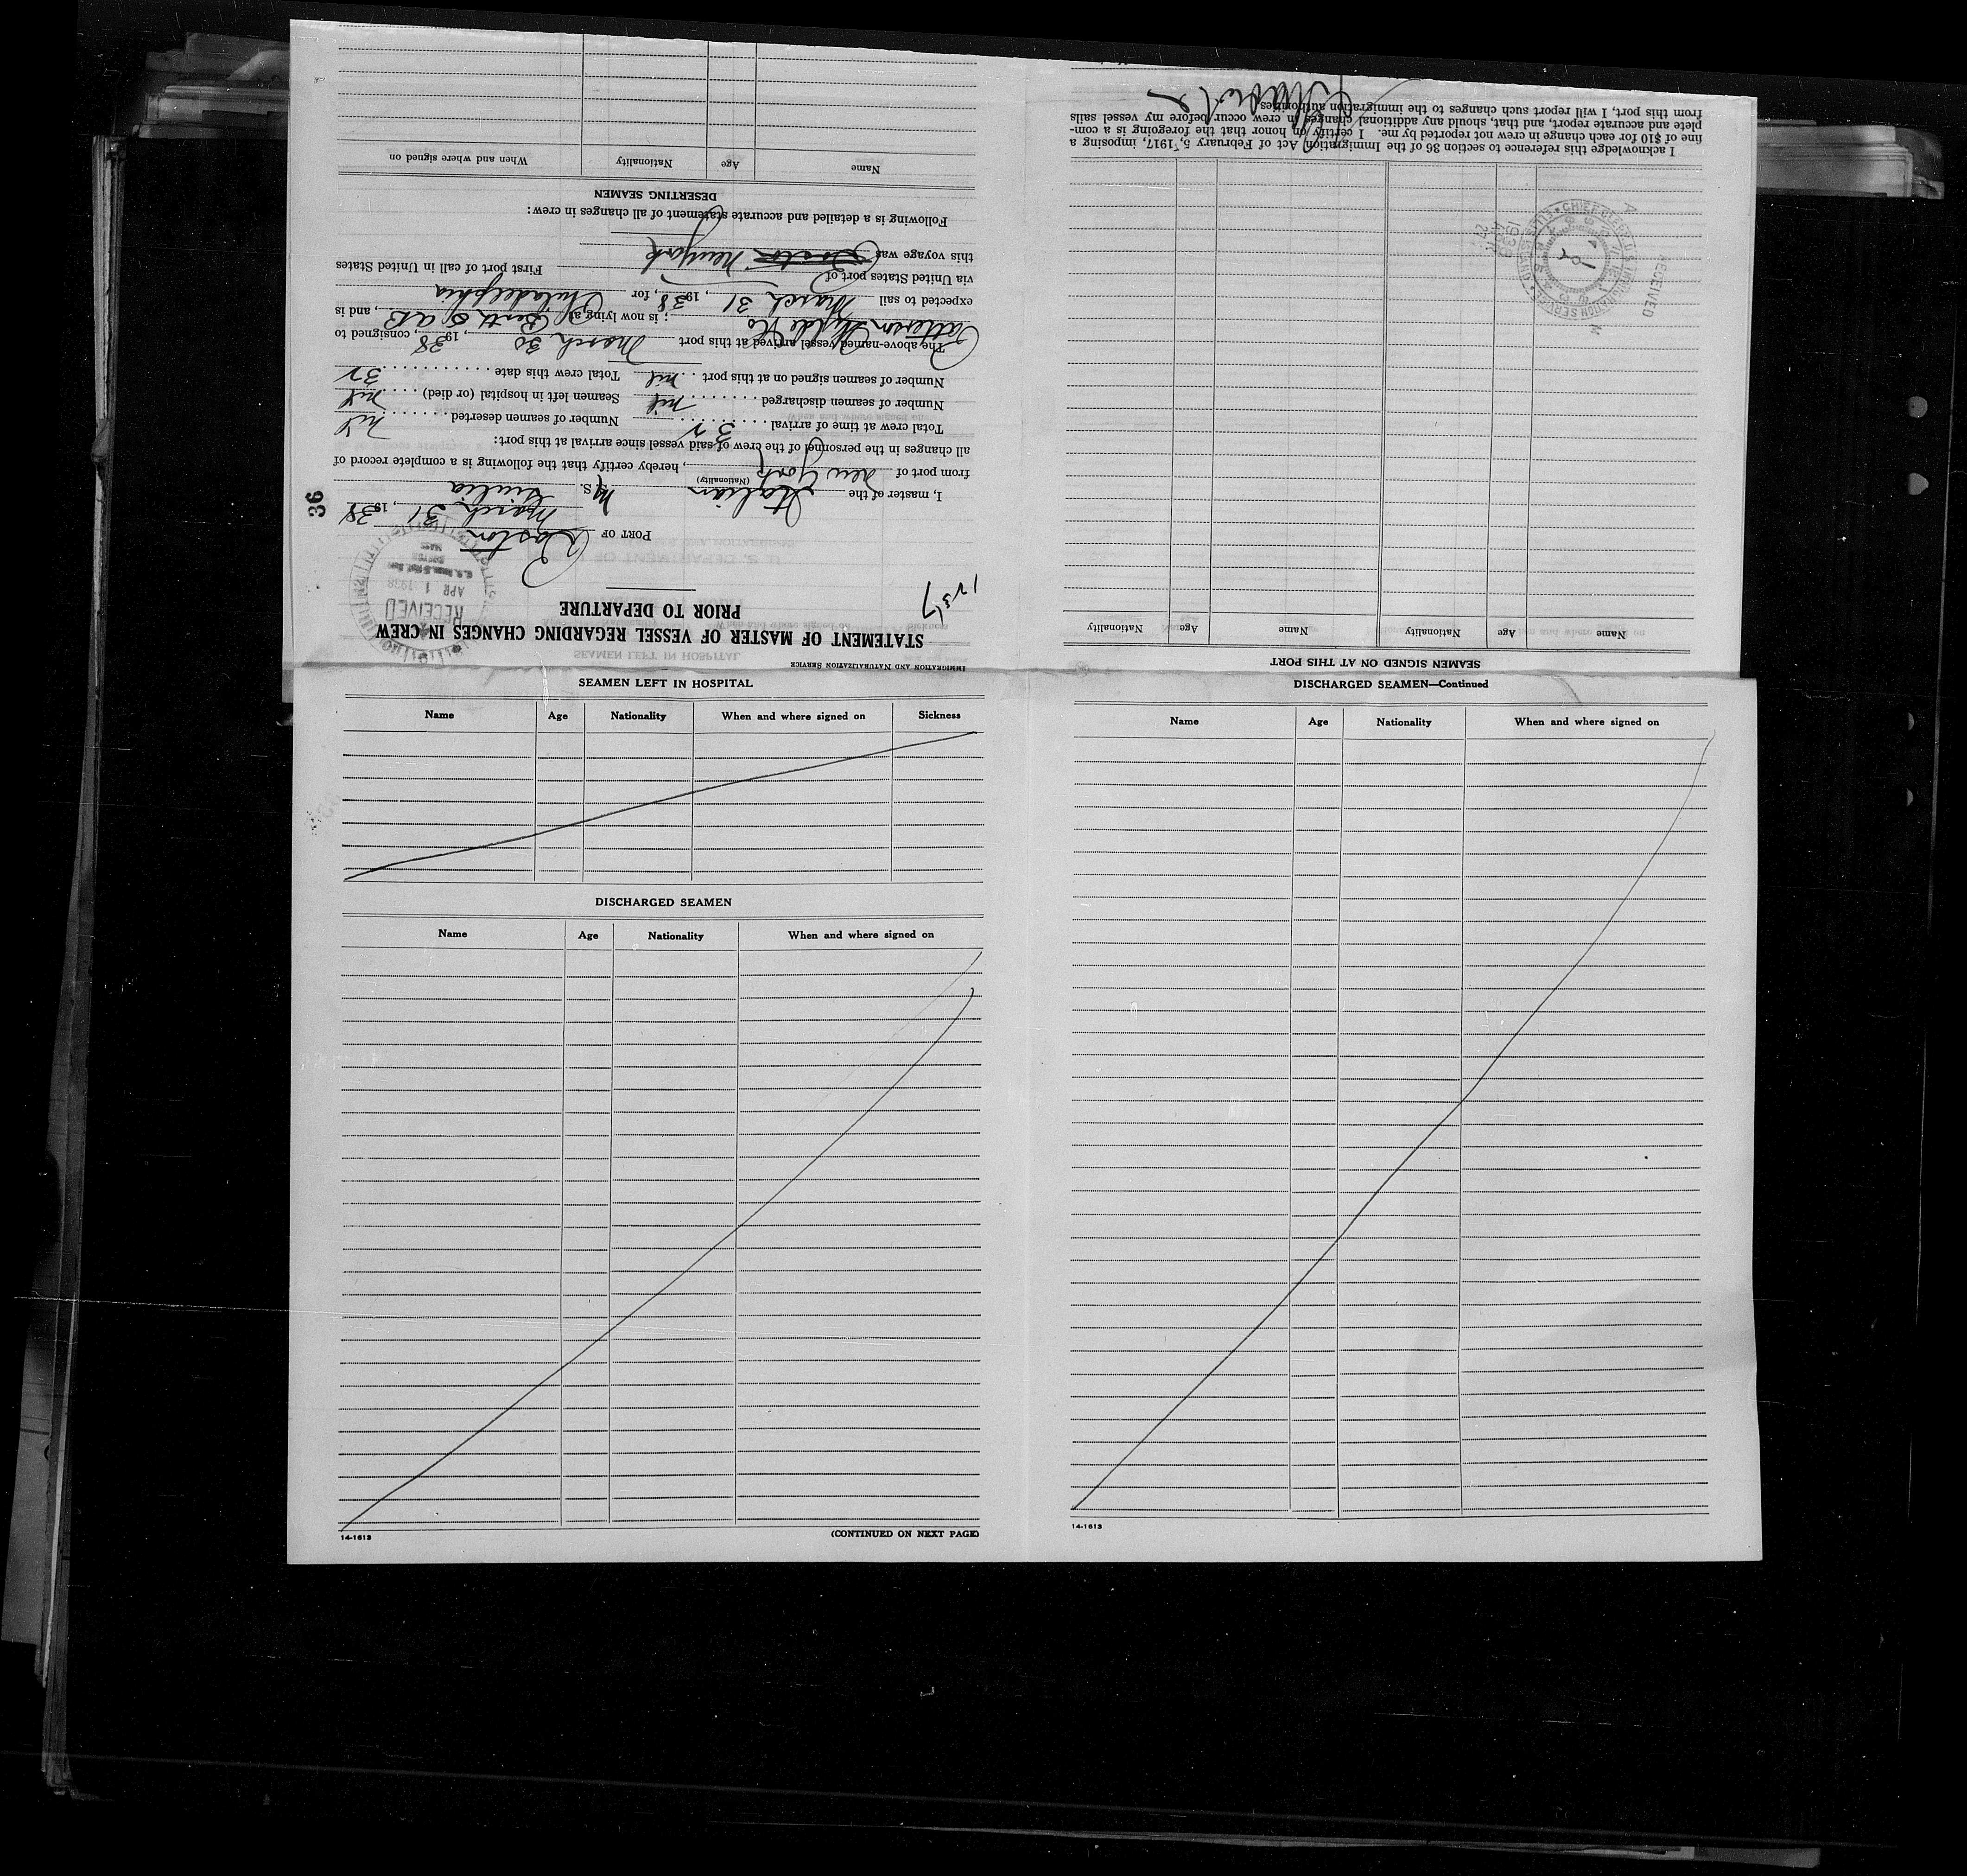 IMMIGRATION AND NATURALIZATION SERVICE
STATEMENT OF MASTER OF VESSEL REGARDING CHANGES IN CREW
PRIOR TO DEPARTURE
RECEIVED
APR 1 1938
BOSTON
MASS
36
PORT OF Boston
March 31, 1938
I, master of the Italian M S. Giulia
(Nationality)
from port of New York, hereby certify that the following is a complete record of
all changes in the personnel of the crew of said vessel since arrival at this port:
Total crew at time of arrival 32 Number of seamen deserted nil
Number of seamen discharged nil Seamen left in hospital (or died) nil
Number of seamen signed on at this port nil Total crew this date 32
The above-named vessel arrived at this port March 30, 1938, consigned to
Patterson Wylde Co; is now lying at Berth 6 AB, and is
expected to sail March 31, 1938, for Philadelphia
via United States port of First port of call in United States
this voyage was Boston New York
Following is a detailed and accurate statement of all changes in crew:
DESERTING SEAMEN
Name Age Nationality When and where signed on
SEAMEN SIGNED ON AT THIS PORT
Name Age Nationality Name Age Nationality
RECEIVED
I acknowledge this reference to section 36 of the Immigration Act of February 5, 1917, imposing a
fine of $10 for each change in crew not reported by me. I certify on honor that the foregoing is a com-
plete and accurate report, and that, should any additional changes in crew occur before my vessel sails
from this port, I will report such changes to the immigration authorities.
SEAMEN LEFT IN HOSPITAL
Name Age Nationality When and where signed on Sickness
DISCHARGED SEAMEN
Name Age Nationality When and where signed on
14-1613
(CONTINUED ON NEXT PAGE)
DISCHARGED SEAMEN—Continued
Name Age Nationality When and where signed on
14-1613